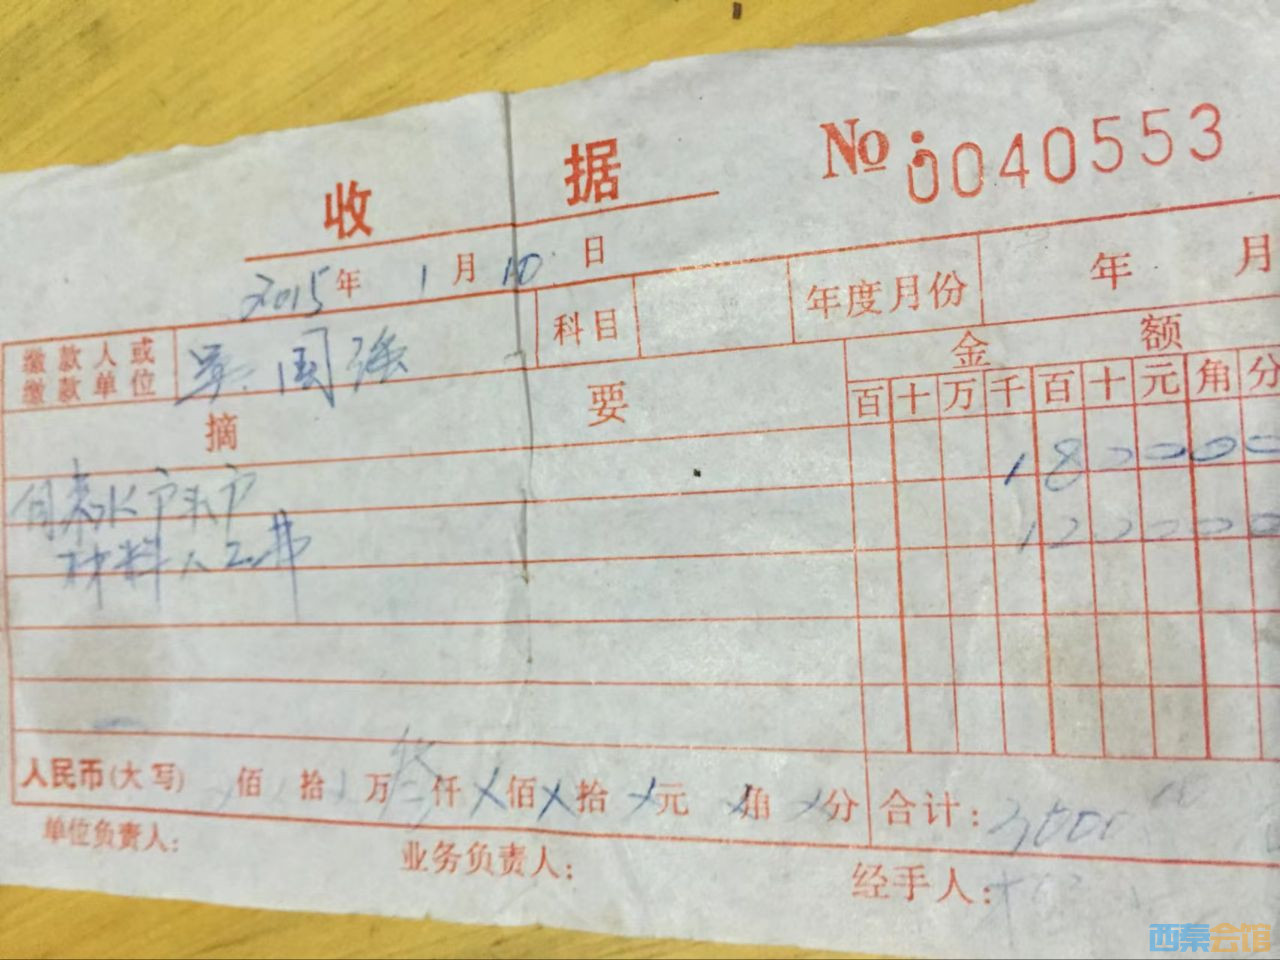 收 据
No: 0040553
2015年 1月 10日
缴款人或
缴款单位
国强
科目
年度月份
年 月
摘 要
金 额
百 十 万 千 百 十 元 角 分
自来水户头户
180000
材料人工费
120000
人民币(大写) 佰 拾 万 叁仟 ×佰 ×拾 ×元 ×角 ×分
合计: 3000
单位负责人:
业务负责人:
经手人:
西秦会馆